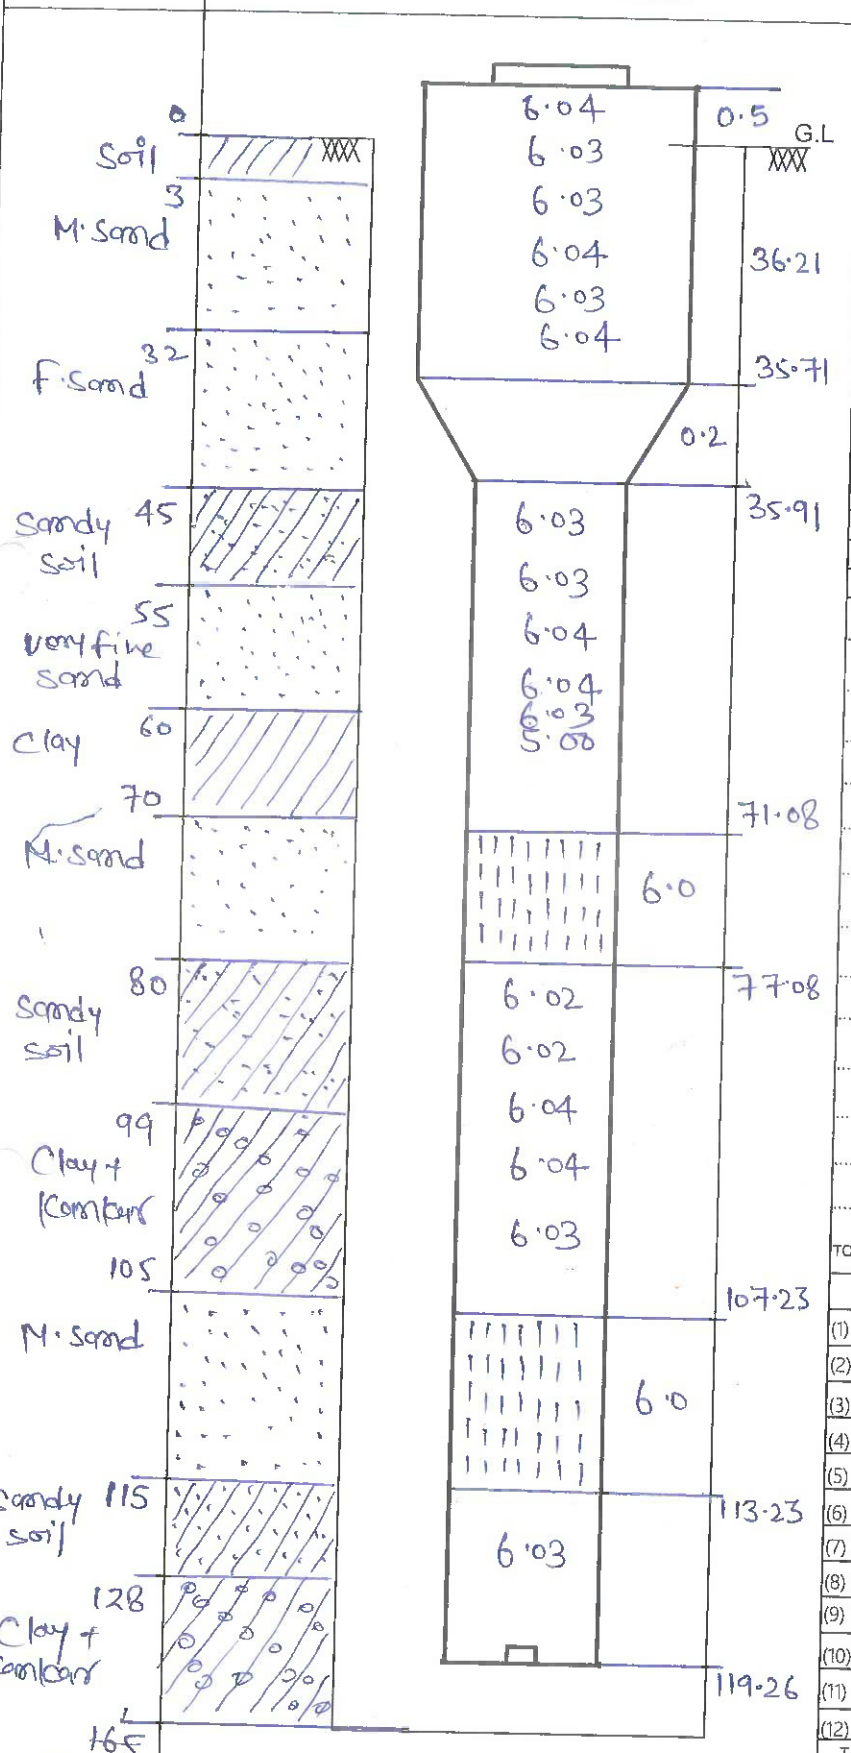 0
Soil
3
M. Sand
32
F. Sand
45
Sandy
Soil
55
Very fine
Sand
60
Clay
70
M. Sand
80
Sandy
Soil
99
Clay +
Kankar
105
M. Sand
115
Sandy
Soil
128
Clay +
6.04
6.03
6.03
6.04
6.03
6.04
0.5
G.L
36.21
35.71
0.2
35.91
6.03
6.03
6.04
6.04
6.03
5.00
71.08
6.0
77.08
6.02
6.02
6.04
6.04
6.03
107.23
6.0
113.23
6.03
119.26
(1)
(2)
(3)
(4)
(5)
(6)
(7)
(8)
(9)
(10)
(11)
(12)